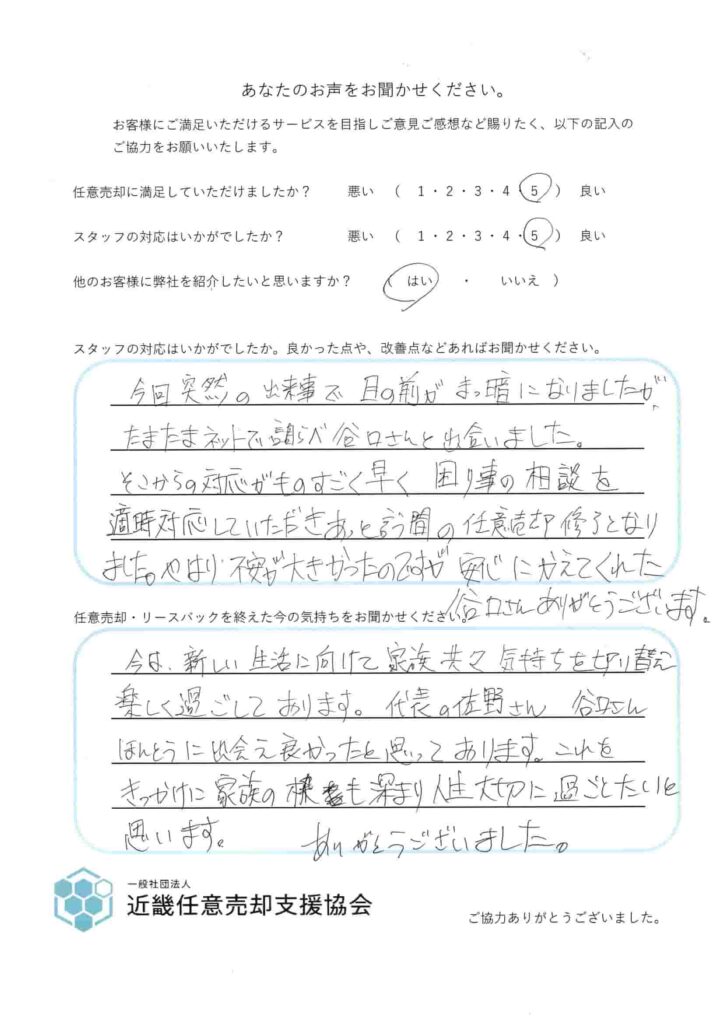 あなたのお声をお聞かせください。
お客様にご満足いただけるサービスを目指しご意見ご感想など賜りたく、以下の記入の
ご協力をお願いいたします。
任意売却に満足していただけましたか？ 悪い （ 1・2・3・4・5 ） 良い
スタッフの対応はいかがでしたか？ 悪い （ 1・2・3・4・5 ） 良い
他のお客様に弊社を紹介したいと思いますか？ （ はい ・ いいえ ）
スタッフの対応はいかがでしたか。良かった点や、改善点などあればお聞かせください。
今回突然の出来事で目の前がまっ暗になりましたが
たまたまネットで調らべ谷口さんと出会いました。
そこからの対応がものすごく早く 困り事の相談を
適時対応していただきあっと言う間の任意売却修了となり
ました。やはり不安が大きかったのですが 安心にかえてくれた
谷口さんありがとうございます。
任意売却・リースバックを終えた今の気持ちをお聞かせください。
今は、新しい生活に向けて家族共々気持ちを切り替え
楽しく過ごしております。代表の佐野さん 谷口さん
ほんとうに出会え良かったと思っております。これを
きっかけに家族の も深まり人生大切に過ごしたいと
思います。 ありがとうございました。
一般社団法人
近畿任意売却支援協会
ご協力ありがとうございました。